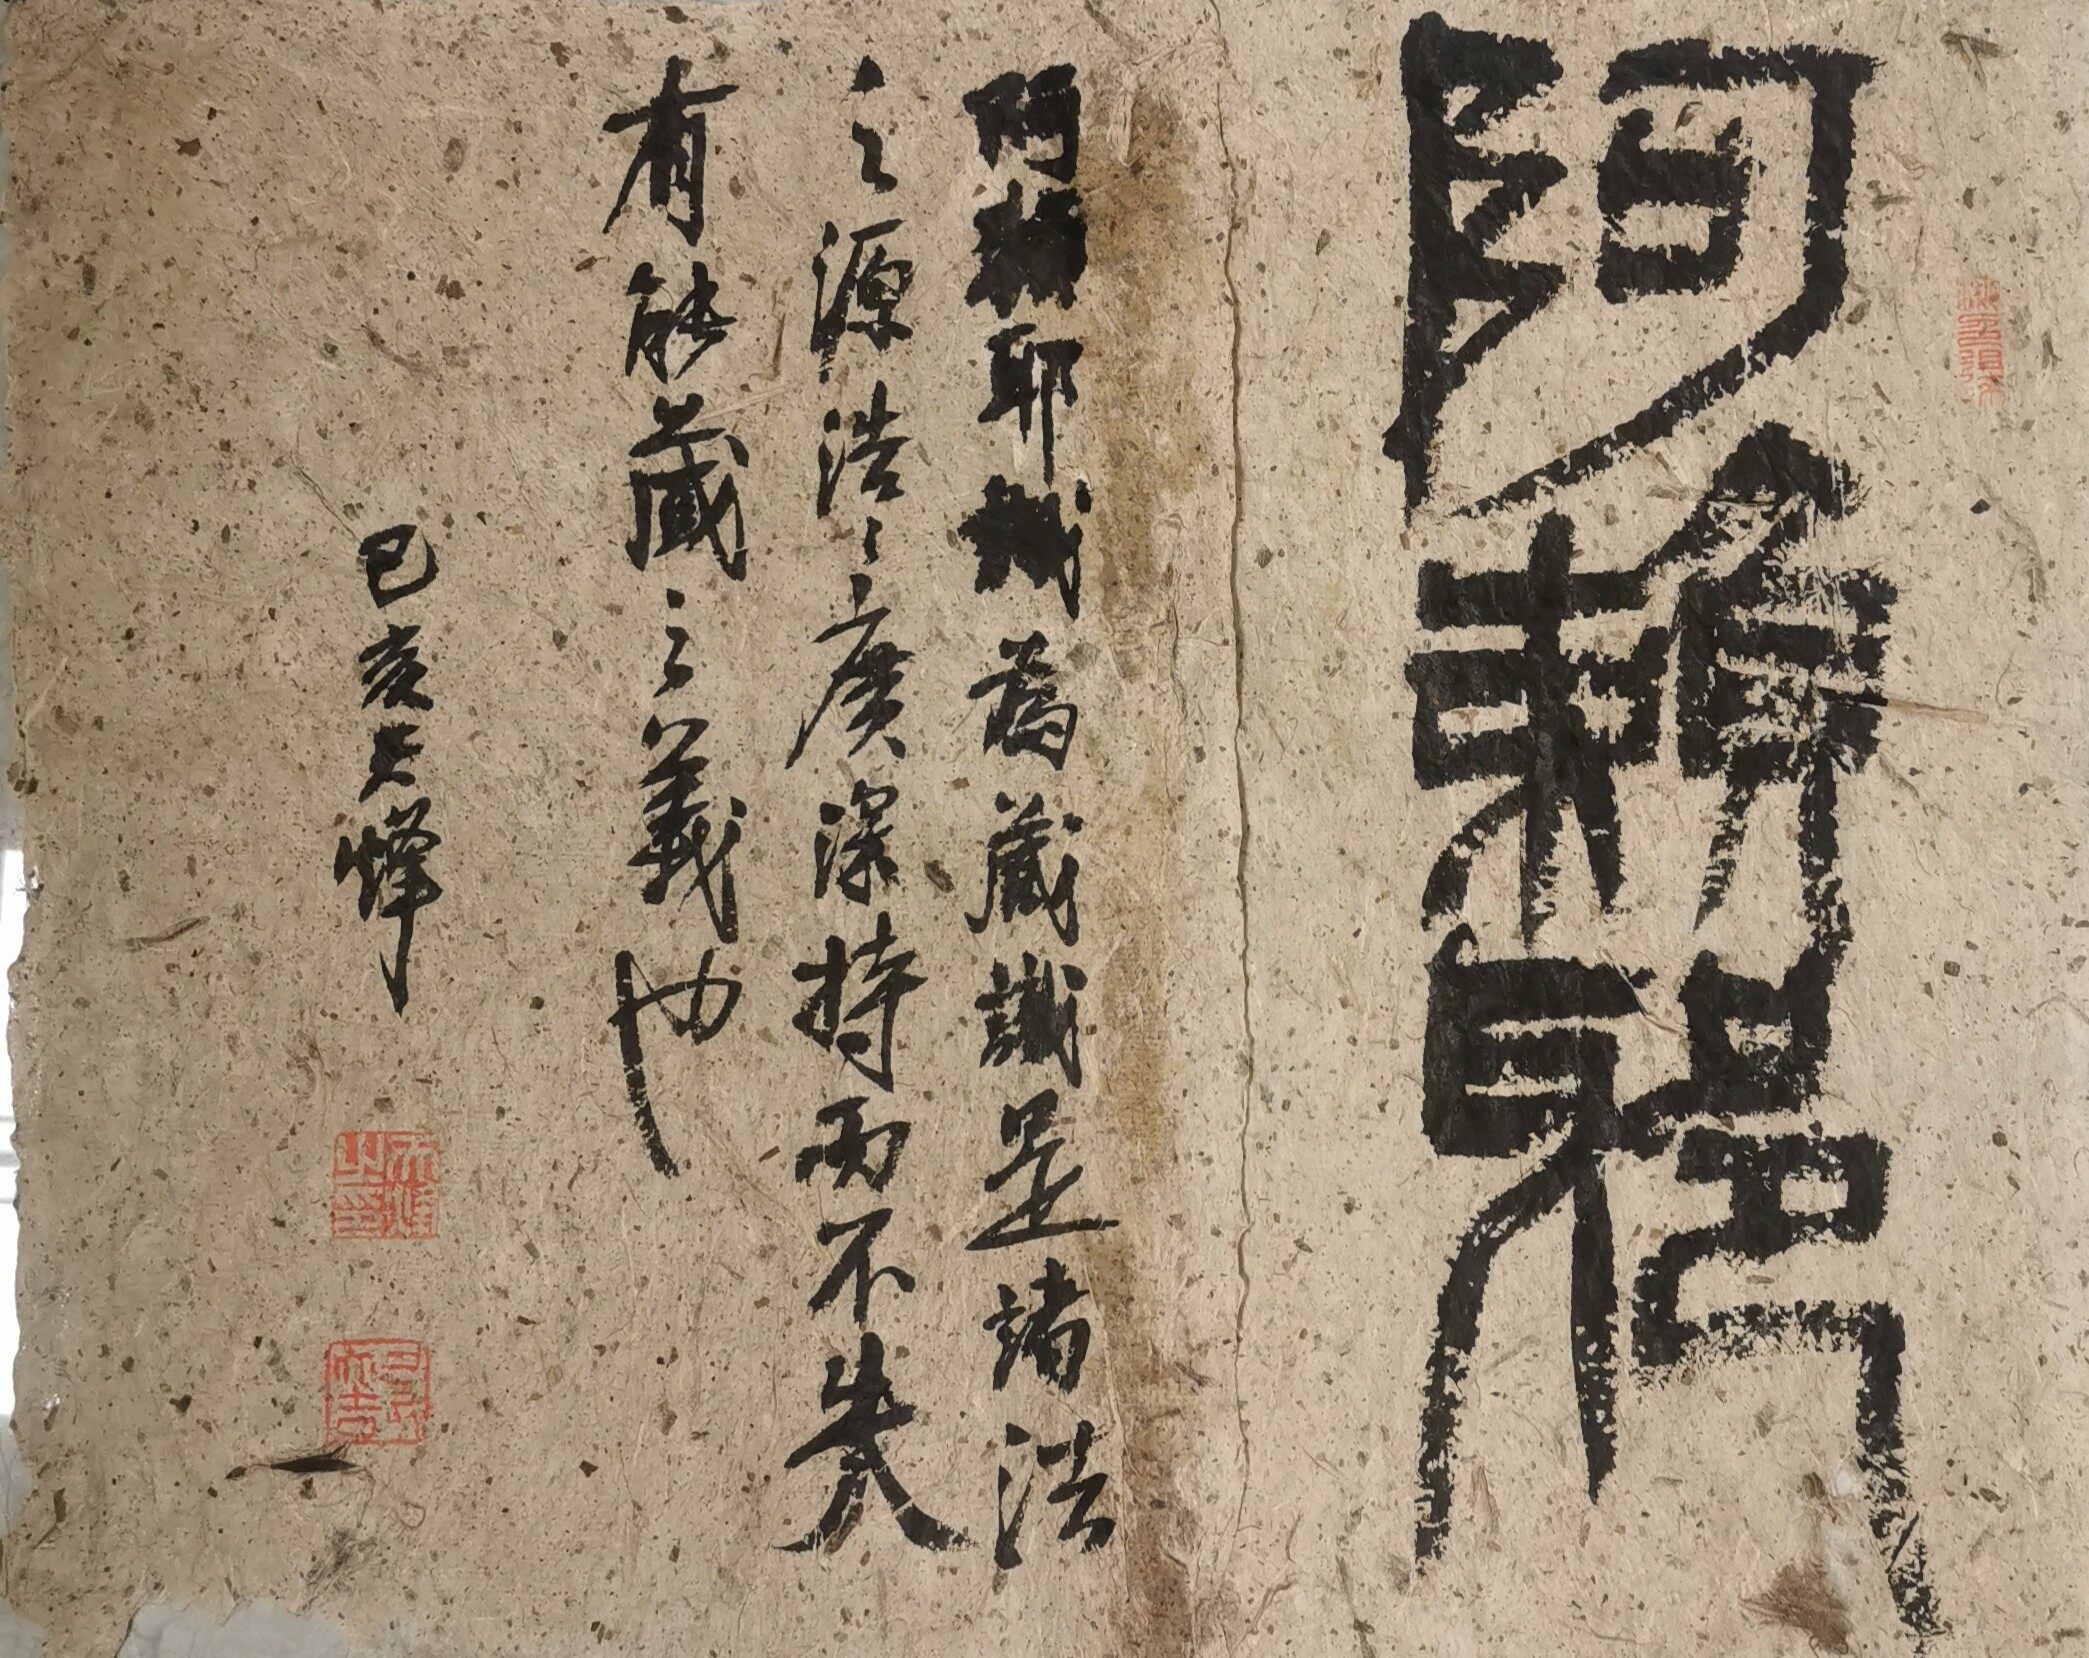 阿賴耶
阿賴耶識為藏識是諸法
之源浩〻廣深持而不失
有能藏之義也
己亥天烽